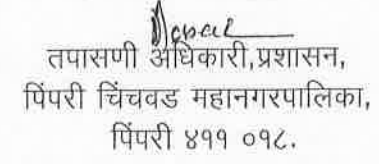 तपासणी अधिकारी,प्रशासन,
पिंपरी चिंचवड महानगरपालिका,
पिंपरी ४११ ०१८.